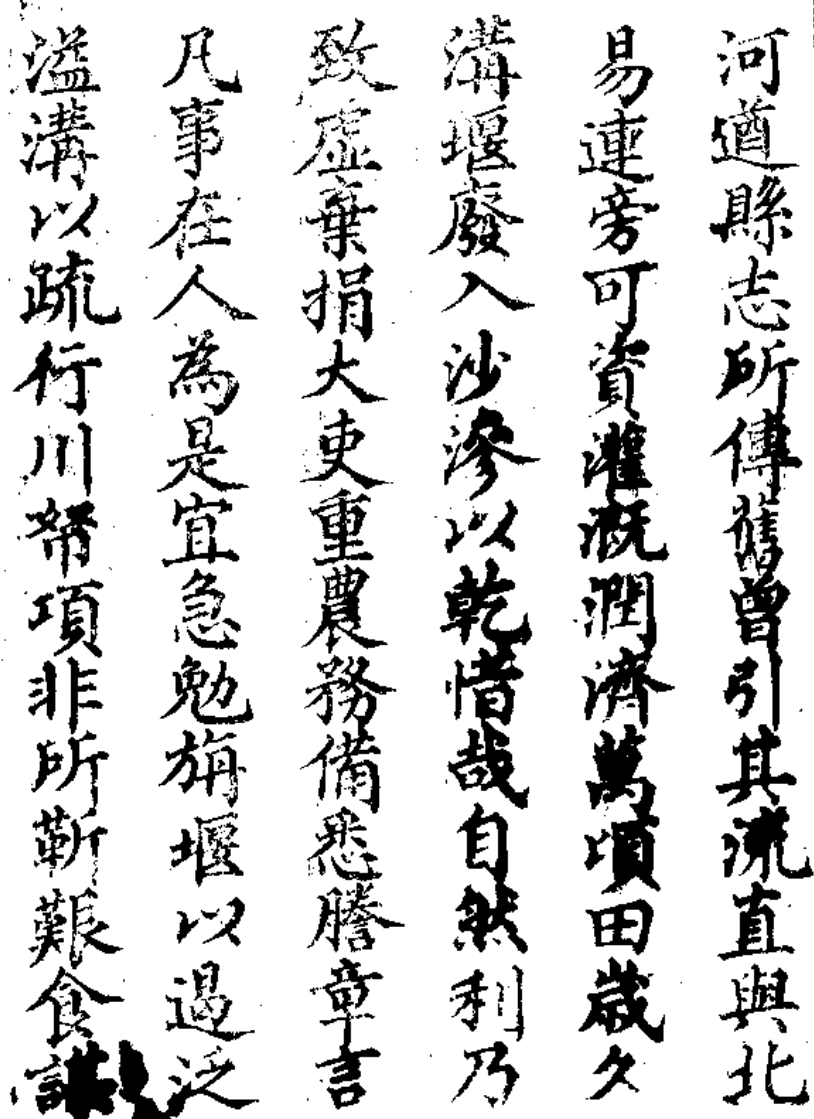 河道縣志所傳舊曾引其流直與北
易連旁可資灌溉潤濟萬頃田歲久
溝堰廢入沙滲以乾惜哉自然利乃
致虛棄捐大吏重農務備悉謄章言
凡事在人為是宜急勉旃堰以遏泛
溢溝以疏行川帑項非所靳艱食謀